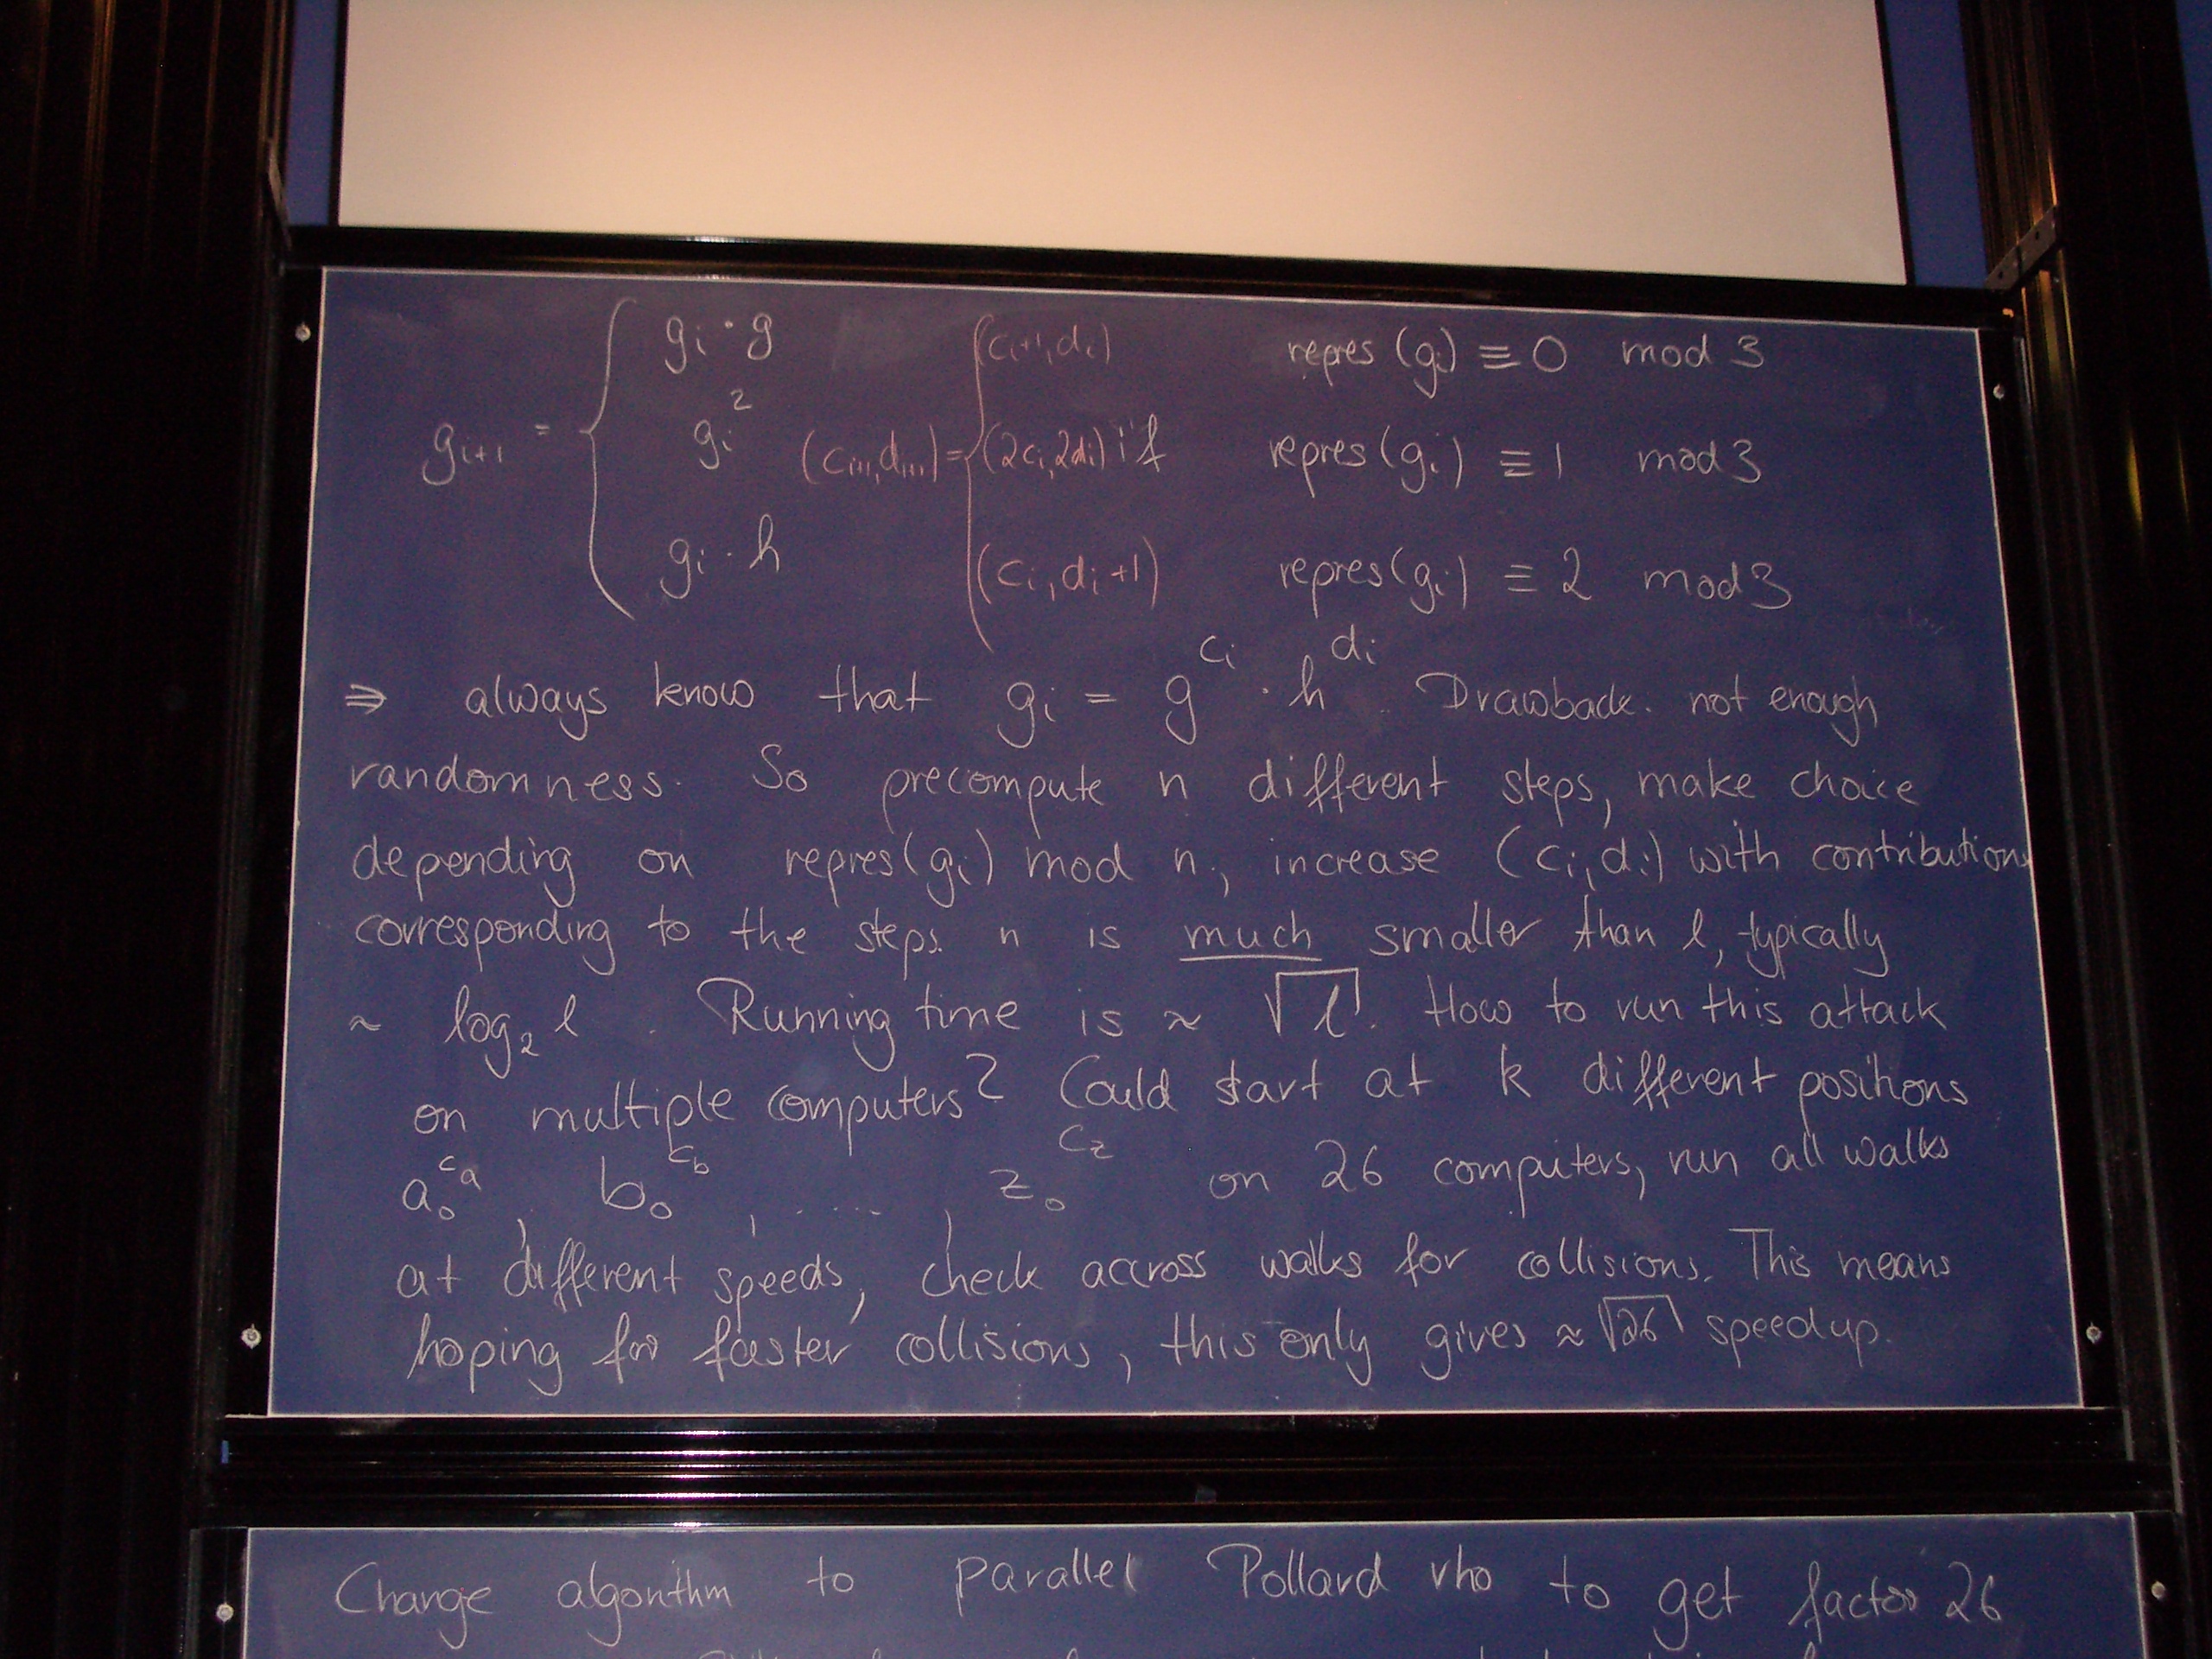 g_i · g (c_i+1, d_i) repres(g_i) ≡ 0 mod 3
g_{i+1} = { g_i^2 (c_{i+1}, d_{i+1}) = { (2c_i, 2d_i) if repres(g_i) ≡ 1 mod 3
g_i · h (c_i, d_i+1) repres(g_i) ≡ 2 mod 3
⇒ always know that g_i = g^{c_i} · h^{d_i}. Drawback. not enough
randomness. So precompute n different steps, make choice
depending on repres(g_i) mod n, increase (c_i, d_i) with contributions
corresponding to the steps. n is much smaller than l, typically
≈ log_2 l. Running time is ≈ √l. How to run this attack
on multiple computers? Could start at k different positions
a_0^{c_a}, b_0^{c_b}, ....., z_0^{c_z} on 26 computers, run all walks
at different speeds, check accross walks for collisions. This means
hoping for faster collisions, this only gives ≈ √26 speedup.
Change algorithm to parallel Pollard rho to get factor 26